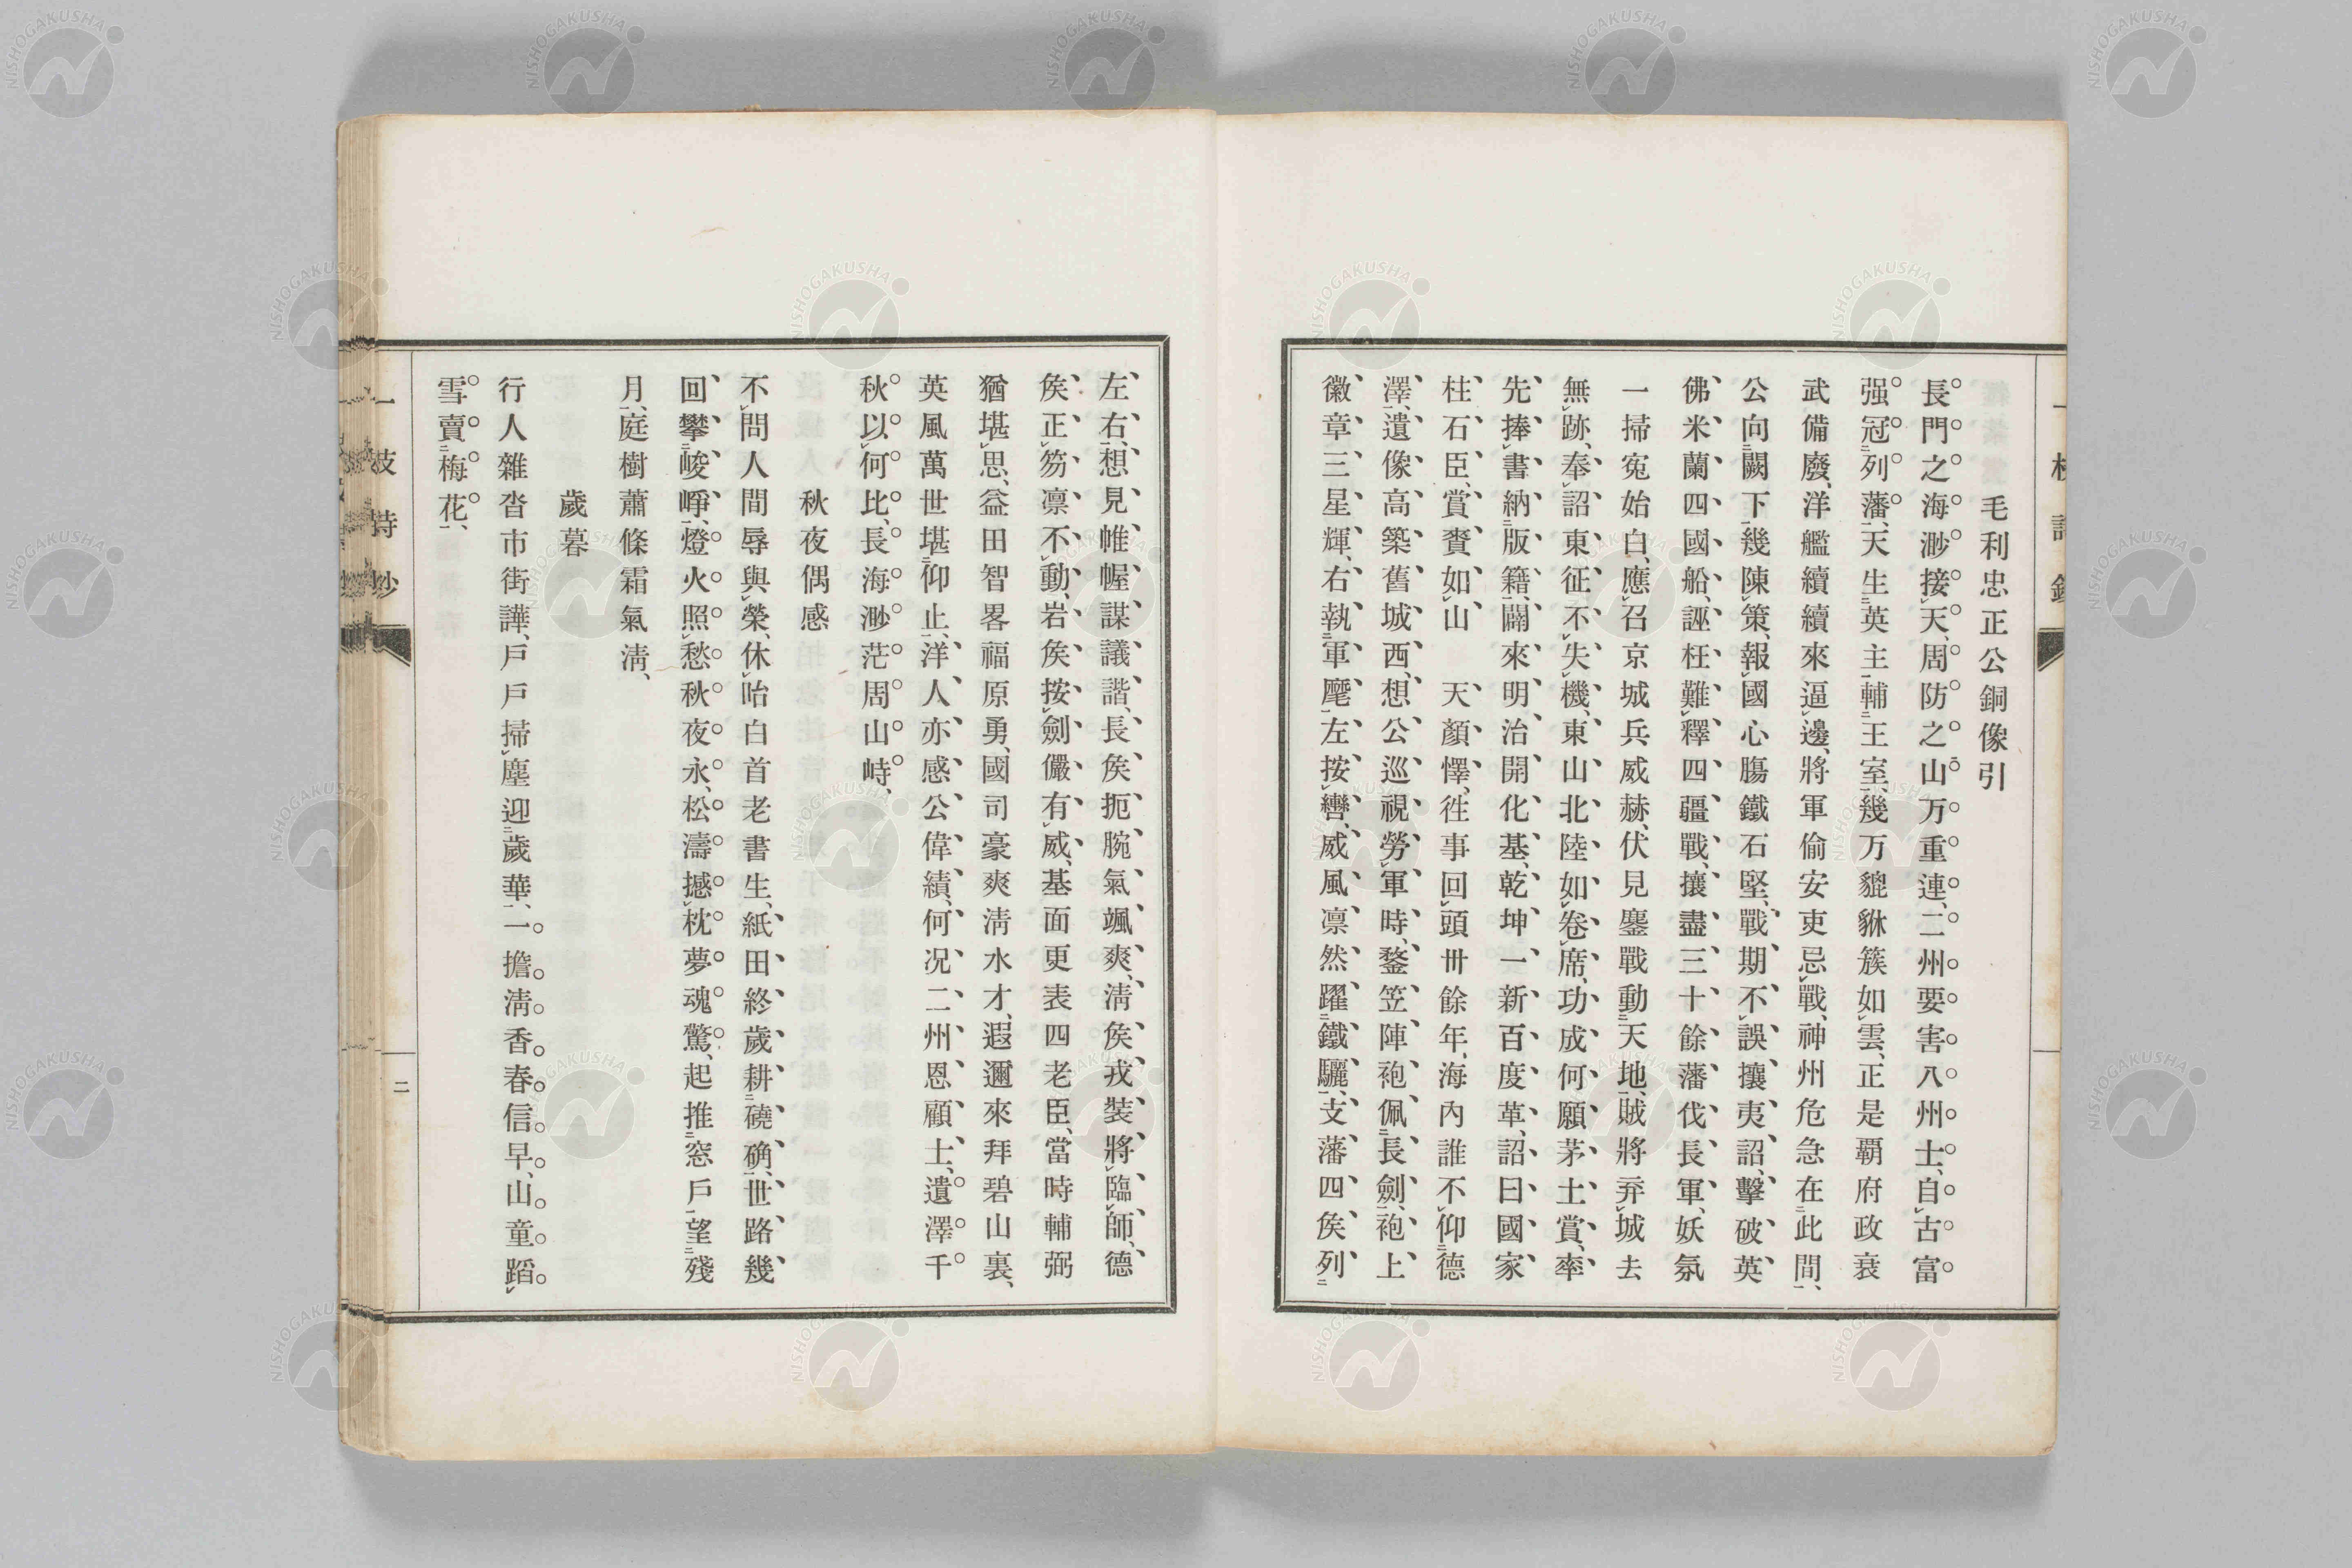 毛利忠正公銅像引
長門之海渺接天、周防之山万重連、二州要害八州士、自古富
强冠列藩、天生英主輔王室、幾万貔貅簇如雲、正是覇府政衰
武備廢、洋艦續續來逼邊、將軍偷安吏忌戰、神州危急在此間、
公向闕下幾陳策、報國心膓鐵石堅、戰期不誤攘夷詔、擊破英
佛米蘭四國船、誣枉難釋四疆戰、攘盡三十餘藩伐長軍、妖氛
一掃寃始白、應召京城兵威赫、伏見鏖戰動天地、賊將弃城去
無跡、奉詔東征不失機、東山北陸如卷席、功成何願茅土賞、率
先捧書納版籍、闢來明治開化基、乾坤一新百度革、詔曰國家
柱石臣、賞賚如山　天顏懌、徃事回頭卅餘年、海內誰不仰德
澤、遺像高築舊城西、想公巡視勞軍時、鍪笠陣袍佩長劍、袍上
徽章三星輝、右執軍麾左按轡、威風凛然躍鐵驪、支藩四矦列
左右、想見帷幄謀議諧、長矦扼腕氣颯爽、淸矦戎裝將臨師、德
矦正笏凛不動、岩矦按劍儼有威、基面更表四老臣、當時輔弼
猶堪思、益田智畧福原勇、國司豪爽淸水才、遐邇來拜碧山裏、
英風萬世堪仰止、洋人亦感公偉績、何况二州恩顧士、遺澤千
秋以何比、長海渺茫周山峙、
秋夜偶感
不問人間辱與榮、休咍白首老書生、紙田終歲耕磽确、世路幾
回攀峻崢、燈火照愁秋夜永、松濤撼枕夢魂驚、起推窓戶望殘
月、庭樹蕭條霜氣淸、
歲暮
行人雜沓市街譁、戶戶掃塵迎歲華、一擔淸香春信早、山童蹈
雪賣梅花、
二